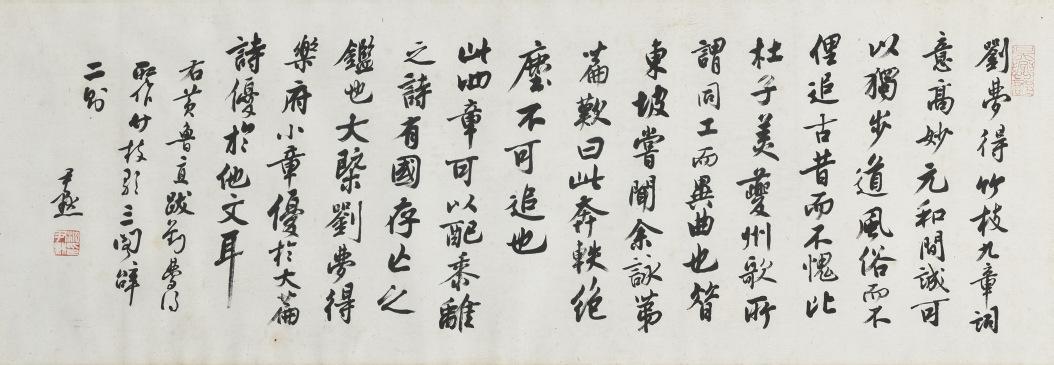 劉夢得竹枝九章詞
意高妙元和間誠可
以獨步道風俗而不
俚追古昔而不愧比
杜子美夔州歌所
謂同工而異曲也昔
東坡嘗聞余詠第
篇歎曰此奔軼絕
塵不可追也
此四章可以配黍離
之詩有國存亡之
鑑也大槩劉夢得
樂府小章優於大篇
詩優於他文耳
右黃魯直跋劉夢得
所作竹枝引三闋
二則
尹默